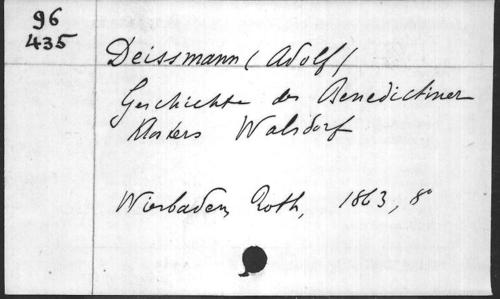 96
435
Deissmann (Adolf)
Geschichte des Benedictiner
Klosters Walsdorf
Wiesbaden, Roth, 1863, 8°